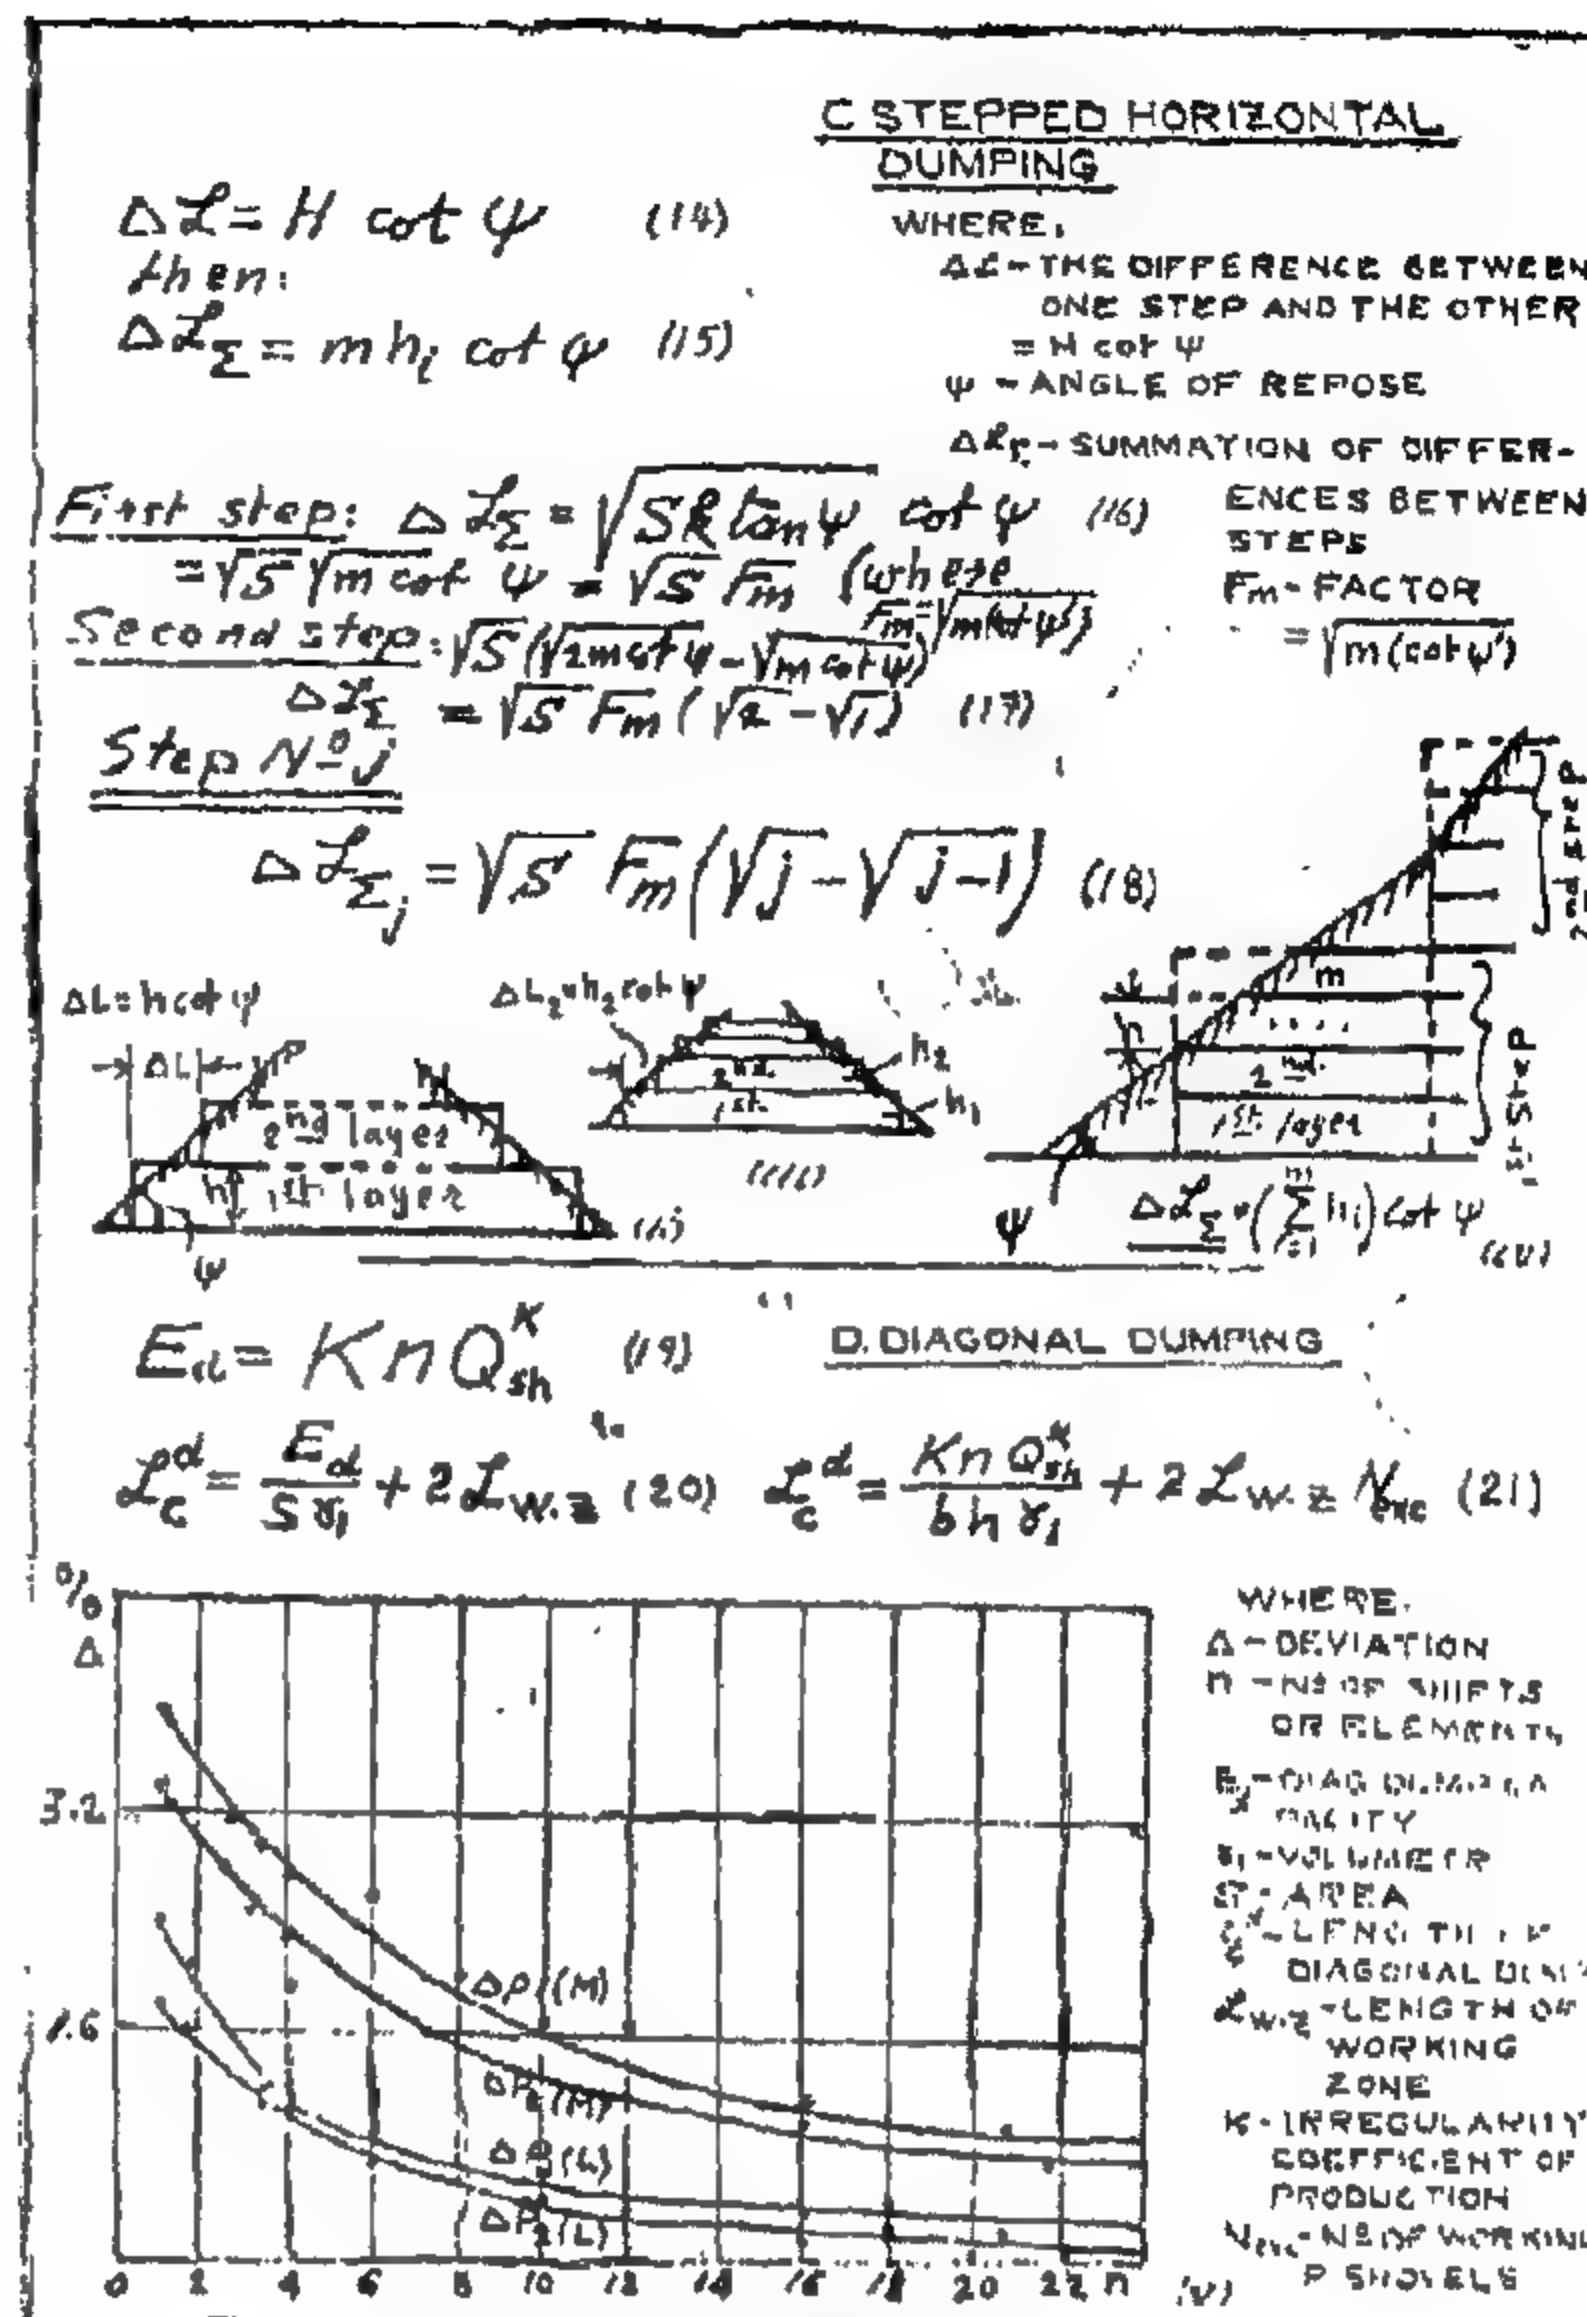 C STEPPED HORIZONTAL
DUMPING
ΔL = H cot ψ (14)
then:
ΔL_Σ = m h_i cot ψ (15)
WHERE.
ΔL - THE DIFFERENCE BETWEEN
ONE STEP AND THE OTHER
= H cot ψ
ψ - ANGLE OF REPOSE
ΔL_Σ - SUMMATION OF DIFFER-
ENCES BETWEEN
STEPS
Fm - FACTOR
= √m(cot ψ)
First step: ΔL_Σ = √(Sk tan ψ) cot ψ (16)
= √S √m cot ψ = √S Fm (where
Fm = √m(cot ψ))
Second step: √S(√2m cot ψ - √m cot ψ)
ΔL_Σ = √S Fm (√2 - √1) (17)
Step Nº j
ΔL_Σj = √S Fm (√j - √j-1) (18)
ΔL = h cot ψ
ΔL
2nd layer
h 1st layer
ψ
ΔL₂ = h₂ cot ψ
2nd.
1st.
h₂
h₁
2nd STEP
m
2nd.
1st layer
1st STEP
ψ
ΔL_Σ = (Σ h_i) cot ψ
E_d = K n Q_sh^K (19)
D. DIAGONAL DUMPING
L_c^d = E_d / S γ₁ + 2 L_w.z (20)
L_c^d = K n Q_sh^K / b h γ₁ + 2 L_w.z N_exc (21)
%
Δ
3.2
1.6
ΔP₁(M)
ΔP₂(M)
ΔP₁(L)
ΔP₂(L)
0 2 4 6 8 10 12 14 16 18 20 22 n
(V)
WHERE.
Δ - DEVIATION
n - Nº OF SHIFTS
OR ELEMENTS
S - AREA
LENGTH OF
DIAGONAL
L_w.z - LENGTH OF
WORKING
ZONE
K - IRREGULARITY
COEFFICIENT OF
PRODUCTION
N_exc - Nº OF WORKING
P SHOVELS